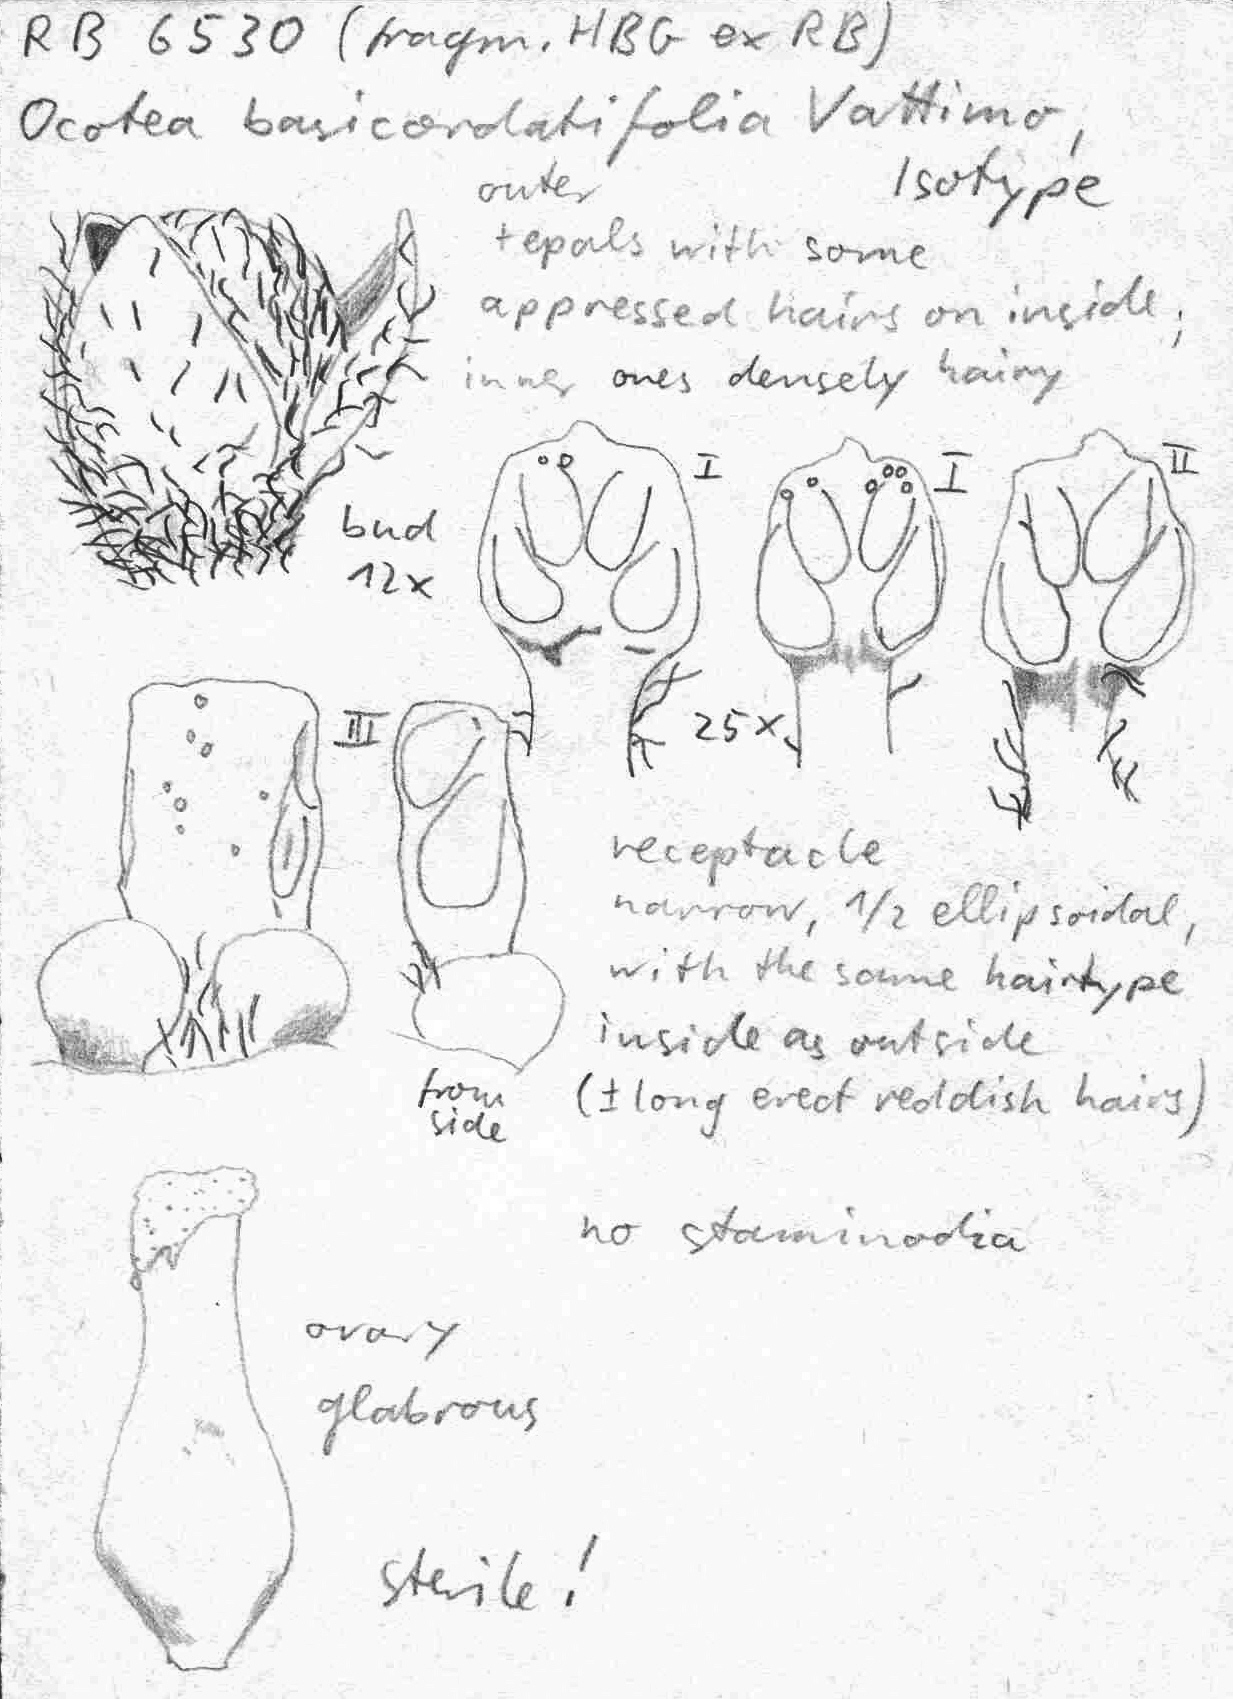 RB 6530 (fragm. HBG ex RB)
Ocotea basicordatifolia Vattimo,
Isotype
outer
tepals with some
appressed hairs on inside;
inner ones densely hairy
bud
12x
I
I
II
III
25x
receptacle
narrow, 1/2 ellipsoidal,
with the same hairtype
inside as outside
(± long erect reddish hairs)
from
side
no staminodia
ovary
glabrous
sterile!